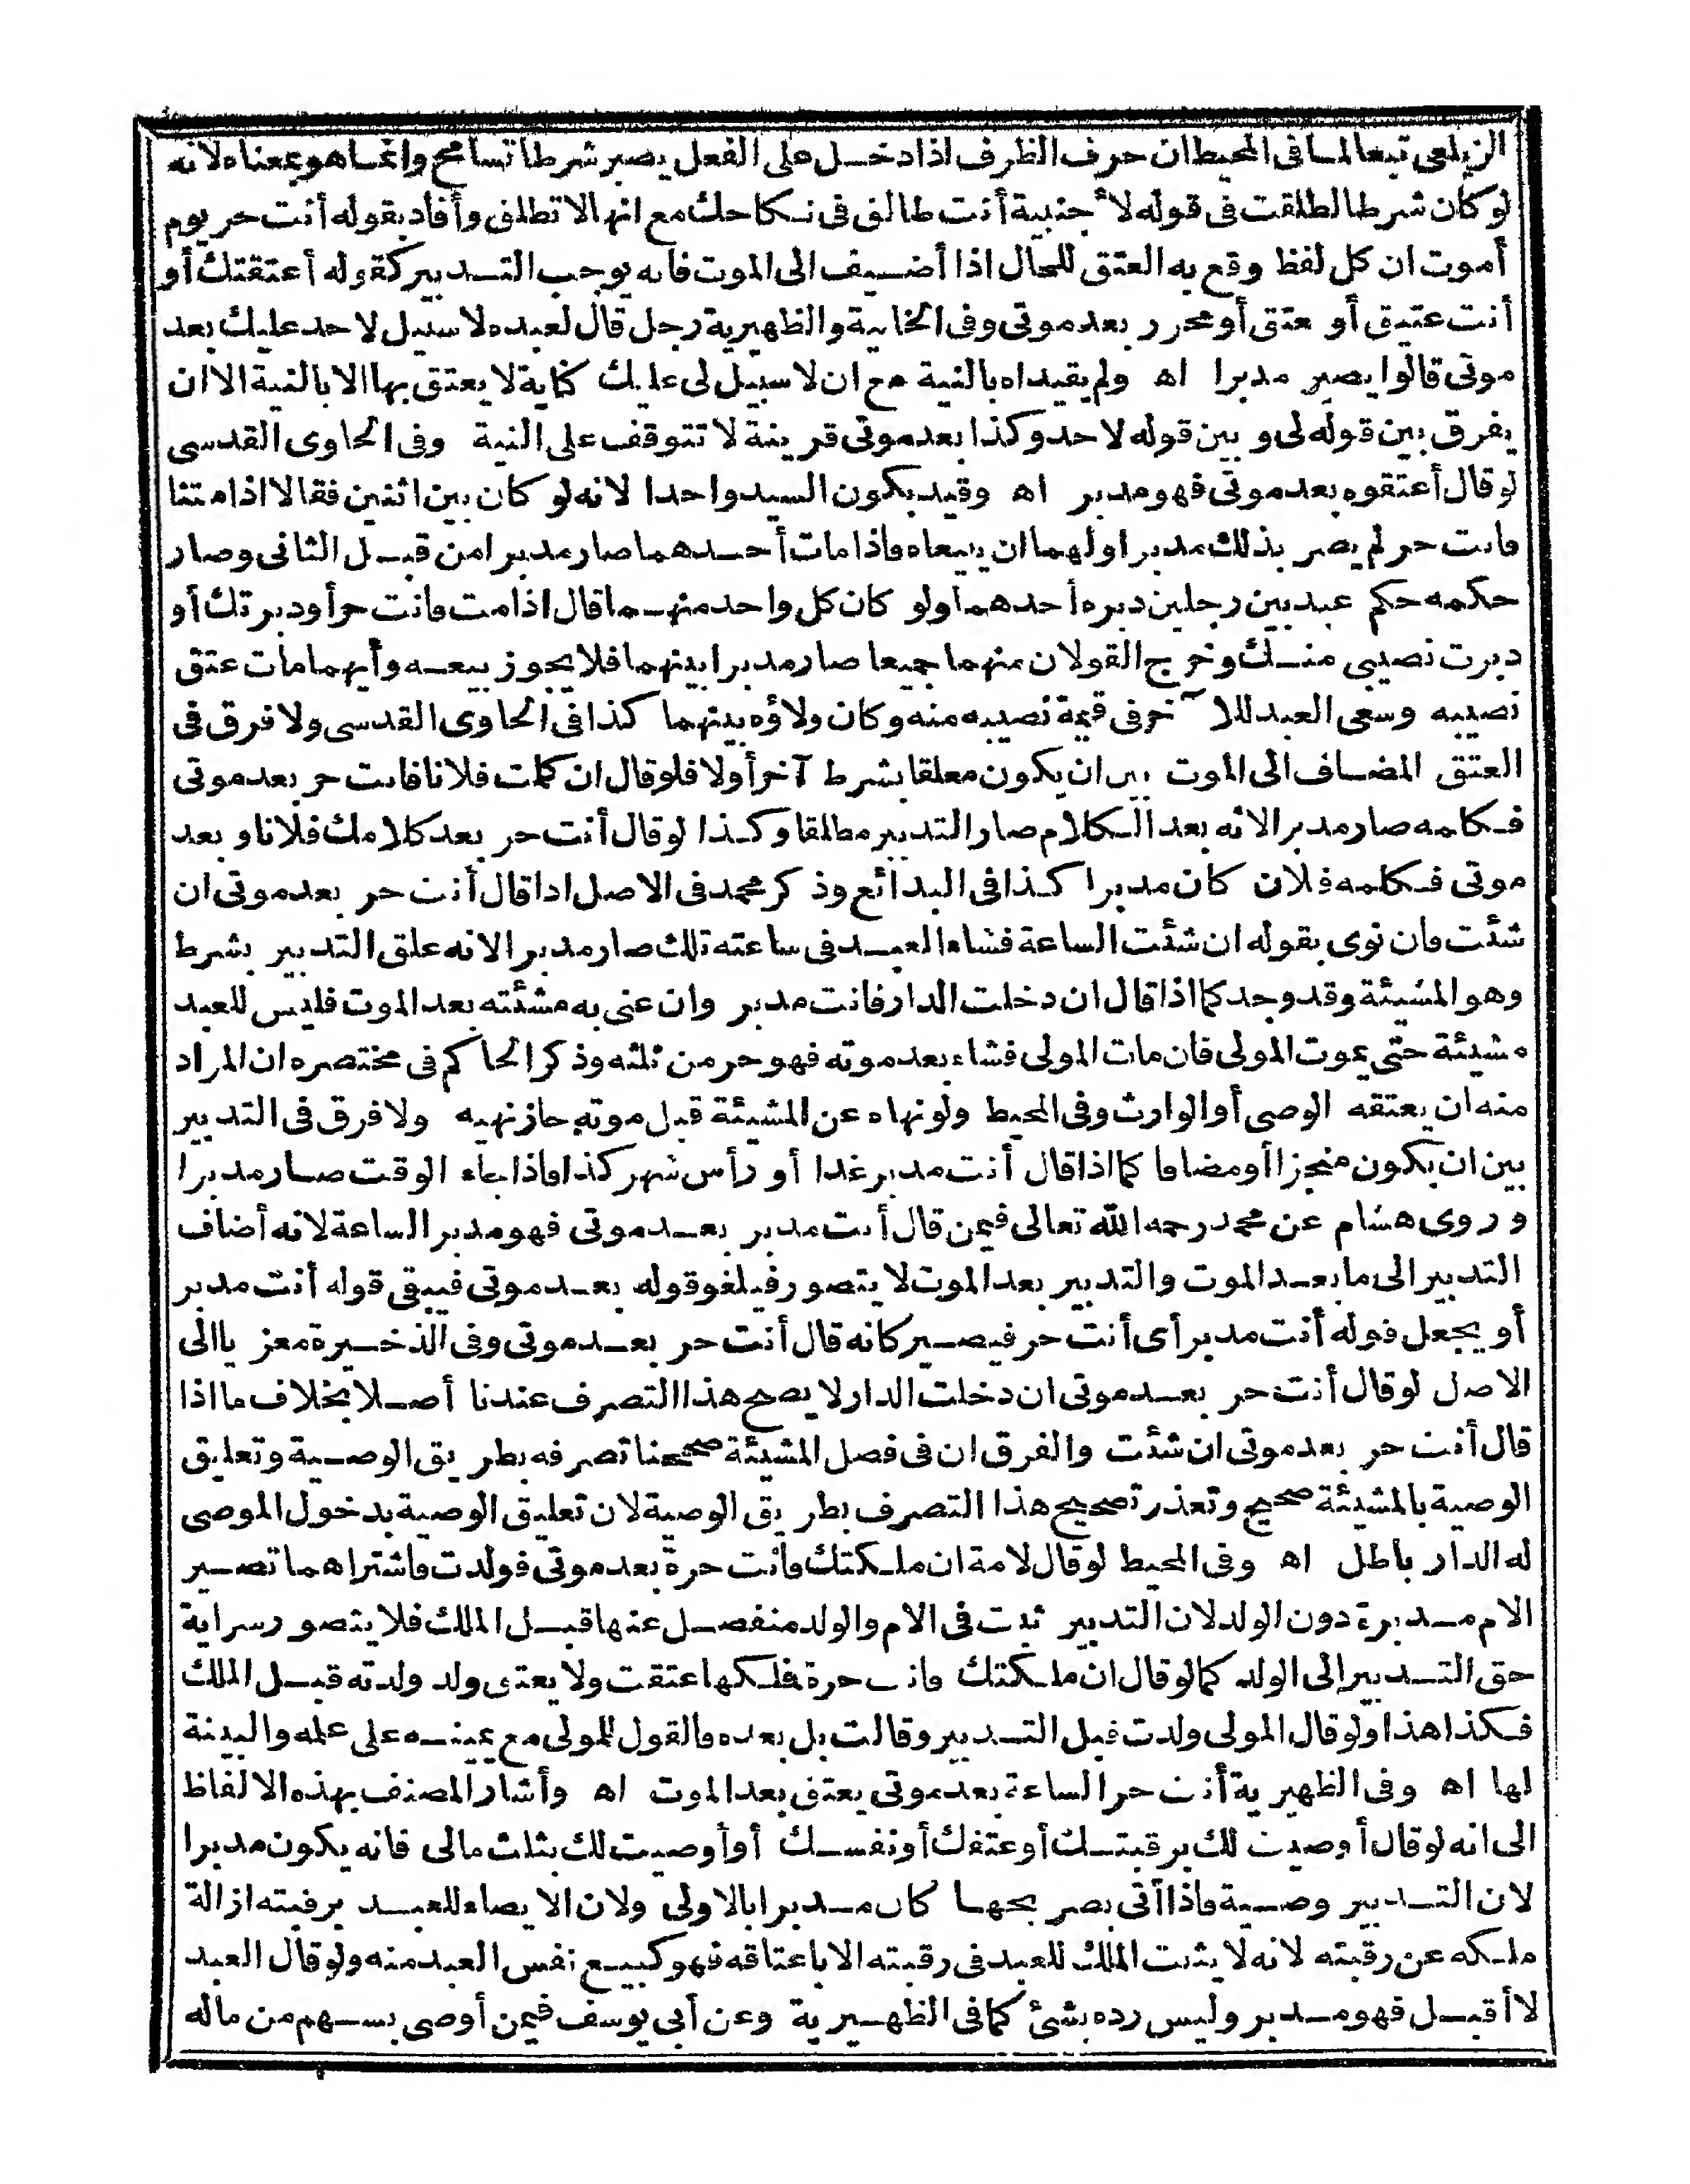 الزيلعى تبعا لما فى المحيط ان حرف الظرف اذا دخل على الفعل يصير شرطا تسامح وانما هو بمعناه لانه
لو كان شرطا لطلقت فى قوله لأجنبية أنت طالق فى نكاحك مع انها لا تطلق وأفاد بقوله أنت حر يوم
أموت ان كل لفظ وقع به العتق للحال اذا أضيف الى الموت فانه يوجب التدبير كقوله أعتقتك أو
أنت عتيق أو عتق أو محرر بعد موتى وفى الخانية والظهيرية رجل قال لعبده لا سبيل لاحد عليك بعد
موتى قالوا يصير مدبرا اه ولم يقيداه بالنية مع ان لا سبيل لى عليك كناية لا يعتق بها الا بالنية الا ان
يفرق بين قوله لى و بين قوله لاحد وكذا بعد موتى قرينة لا تتوقف على النية وفى الحاوى القدسى
لو قال أعتقوه بعد موتى فهو مدبر اه وقيد بكون السيد واحدا لانه لو كان بين اثنين فقالا اذا متنا
فانت حر لم يصر بذلك مدبرا ولهما ان يبيعاه فاذا مات أحدهما صار مدبرا من قبل الثانى وصار
حكمه حكم عبد بين رجلين دبره أحدهما ولو كان كل واحد منهما قال اذا مت فانت حر أو دبرتك أو
دبرت نصيبى منك وخرج القولان منهما جميعا صار مدبرا بينهما فلا يجوز بيعه وأيهما مات عتق
نصيبه وسعى العبد للآخر فى قيمة نصيبه منه وكان ولاؤه بينهما كذا فى الحاوى القدسى ولا فرق فى
العتق المضاف الى الموت بين ان يكون معلقا بشرط آخر أولا فلو قال ان كلمت فلانا فانت حر بعد موتى
فكلمه صار مدبرا لانه بعد الكلام صار التدبير مطلقا وكذا لو قال أنت حر بعد كلامك فلانا و بعد
موتى فكلمه فلان كان مدبرا كذا فى البدائع وذكر محمد فى الاصل اذا قال أنت حر بعد موتى ان
شئت فان نوى بقوله ان شئت الساعة فشاء العبد فى ساعته تلك صار مدبرا لانه علق التدبير بشرط
وهو المشيئة وقد وجد كما اذا قال ان دخلت الدار فانت مدبر وان عنى به مشئته بعد الموت فليس للعبد
مشيئة حتى يموت المولى فان مات المولى فشاء بعد موته فهو حر من ثلثه وذكر الحاكم فى مختصره ان المراد
منه ان يعتقه الوصى أو الوارث وفى المحيط ولو نهاه عن المشيئة قبل موته جاز نهيه ولا فرق فى التدبير
بين ان يكون منجزا أو مضافا كما اذا قال أنت مدبر غدا أو رأس شهر كذا فاذا جاء الوقت صار مدبرا
و روى هشام عن محمد رحمه الله تعالى فيمن قال أنت مدبر بعد موتى فهو مدبر الساعة لانه أضاف
التدبير الى ما بعد الموت والتدبير بعد الموت لا يتصور فيلغو قوله بعد موتى فيبقى قوله أنت مدبر
أو يجعل قوله أنت مدبر أى أنت حر فيصير كانه قال أنت حر بعد موتى وفى الذخيرة معزيا الى
الاصل لو قال أنت حر بعد موتى ان دخلت الدار لا يصح هذا التصرف عندنا أصلا بخلاف ما اذا
قال أنت حر بعد موتى ان شئت والفرق ان فى فصل المشيئة صححنا تصرفه بطريق الوصية وتعليق
الوصية بالمشيئة صحيح وتعذر تصحيح هذا التصرف بطريق الوصية لان تعليق الوصية بدخول الموصى
له الدار باطل اه وفى المحيط لو قال لامة ان ملكتك فأنت حرة بعد موتى فولدت فاشتراهما تصير
الام مدبرة دون الولد لان التدبير ثبت فى الام والولد منفصل عنها قبل الملك فلا يتصور سراية
حق التدبير إلى الولد كما لو قال ان ملكتك فانت حرة فملكها عتقت ولا يعتق ولد ولدته قبل الملك
فكذا هذا ولو قال المولى ولدت قبل التدبير وقالت بل بعده فالقول للمولى مع يمينه على علمه والبينة
لها اه وفى الظهيرية أنت حر الساعة بعد موتى يعتق بعد الموت اه وأشار المصنف بهذه الالفاظ
الى انه لو قال أوصيت لك برقبتك أو عتقك أو نفسك أو أوصيت لك بثلث مالى فانه يكون مدبرا
لان التدبير وصية فاذا أتى بصريحها كان مدبرا بالاولى ولان الايصاء للعبد برقبته ازالة
ملكه عن رقبته لانه لا يثبت الملك للعبد فى رقبته الا باعتاقه فهو كبيع نفس العبد منه ولو قال العبد
لا أقبل فهو مدبر وليس رده بشئ كما فى الظهيرية وعن أبى يوسف فيمن أوصى بسهم من ماله